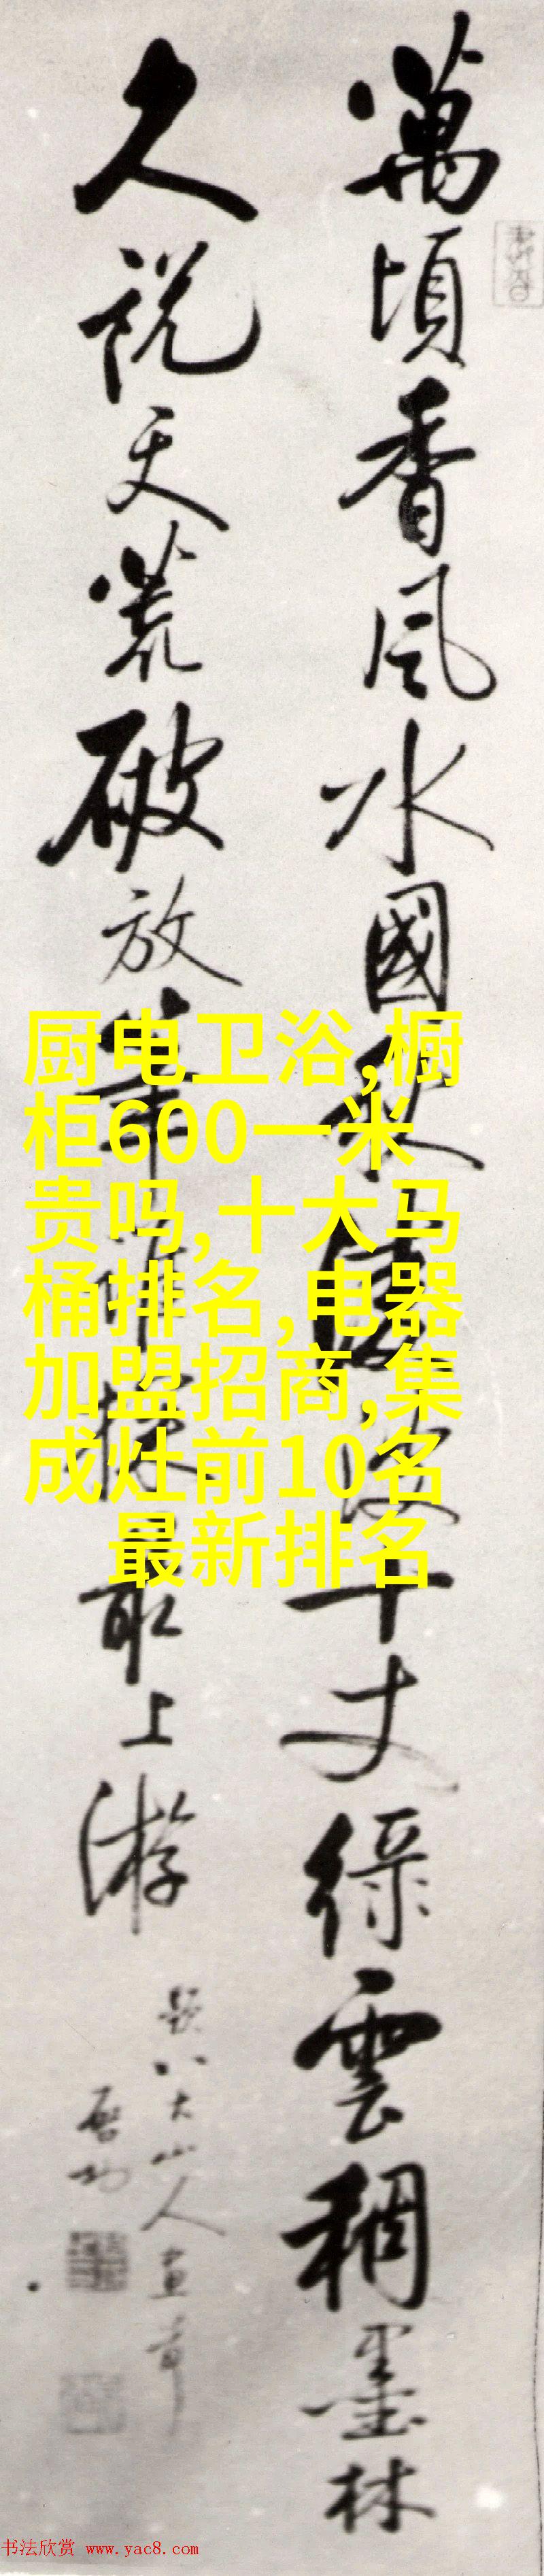 萬頃香風水國秋波丈綠雲稠墨林
久説天荒破放筆探最上游
題八大山人畫
啓功
厨电卫浴,橱
柜600一米
贵吗,十大马
桶排名,电器
加盟招商,集
成灶前10名
最新排名
书法欣赏 www.yac8.com